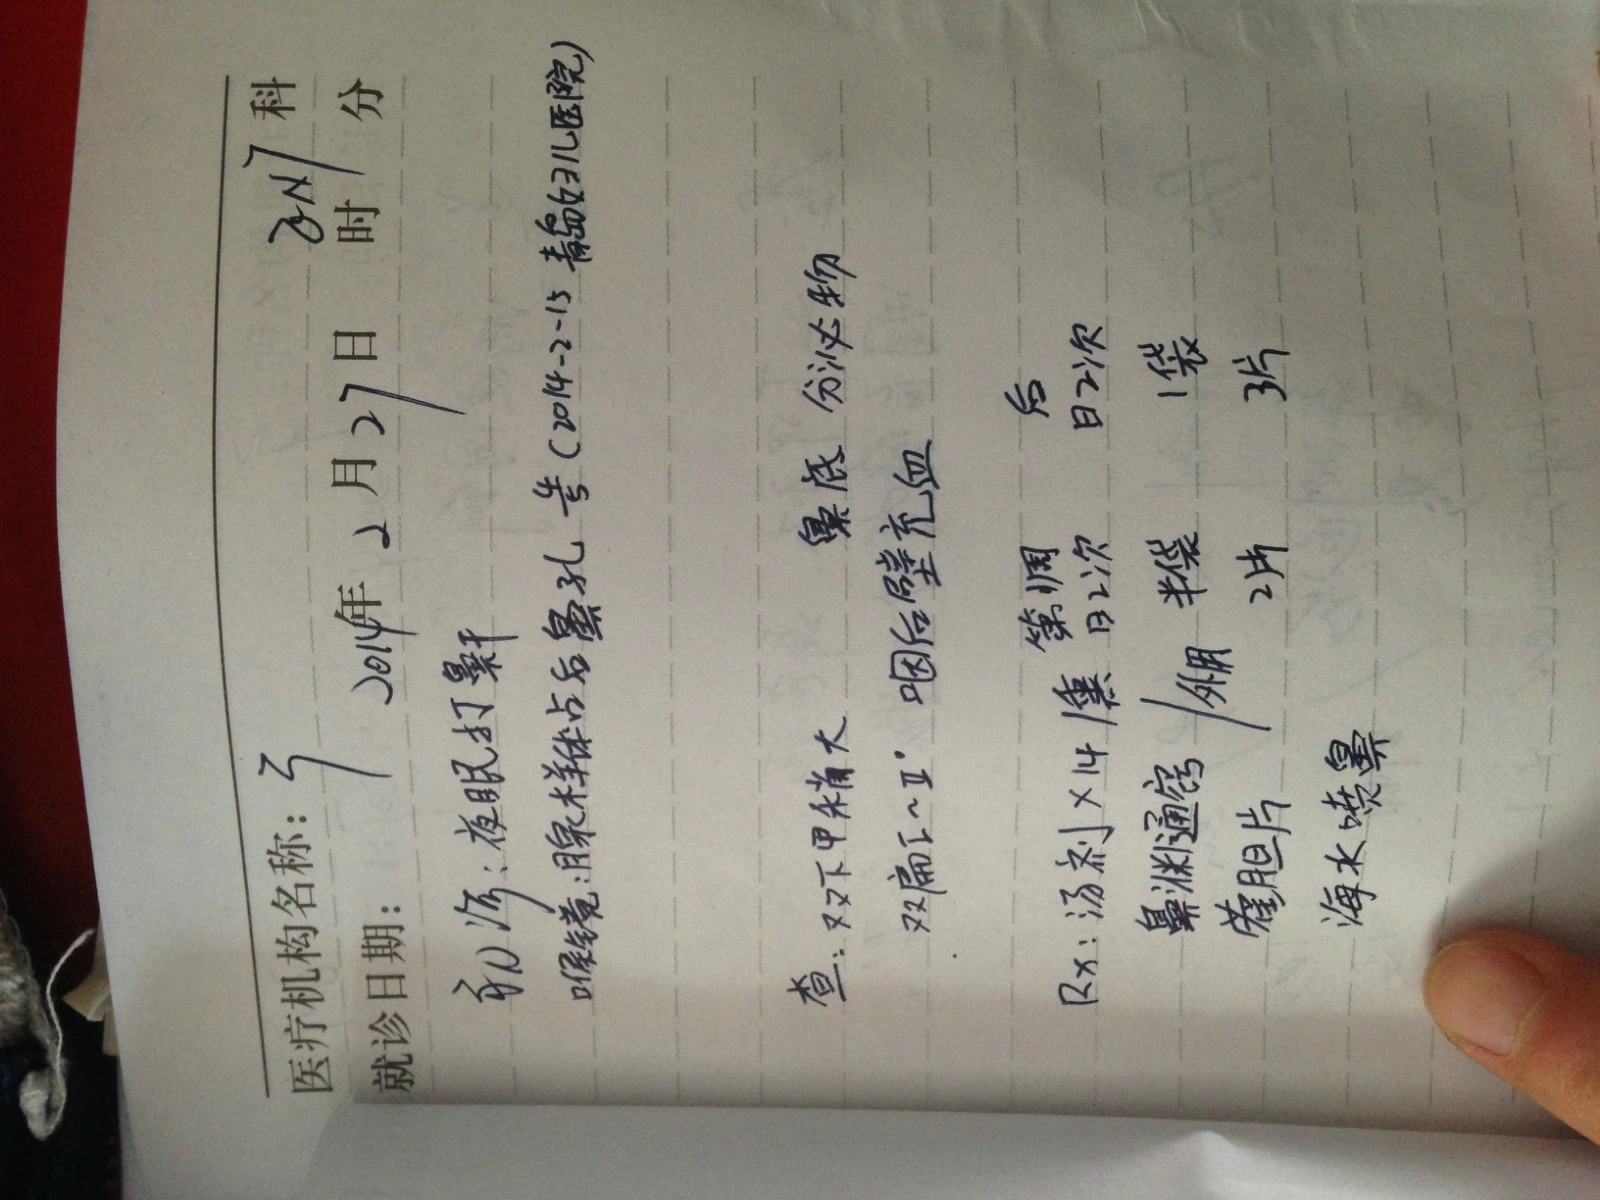 医疗机构名称： 科
就诊日期： 2014年 2月27日 时 分
初诊：夜眠打鼾
喉镜：腺样体占后鼻孔 (2014-2-15 青岛妇儿医院)
查：双下甲稍大 鼻底 分泌物
双扁I~II° 咽后壁充血
后
Rx：汤剂×14 第1周 日2次 日2次
鼻渊通窍 半袋 1袋
藿胆片 外用 2片 3片
海水喷鼻